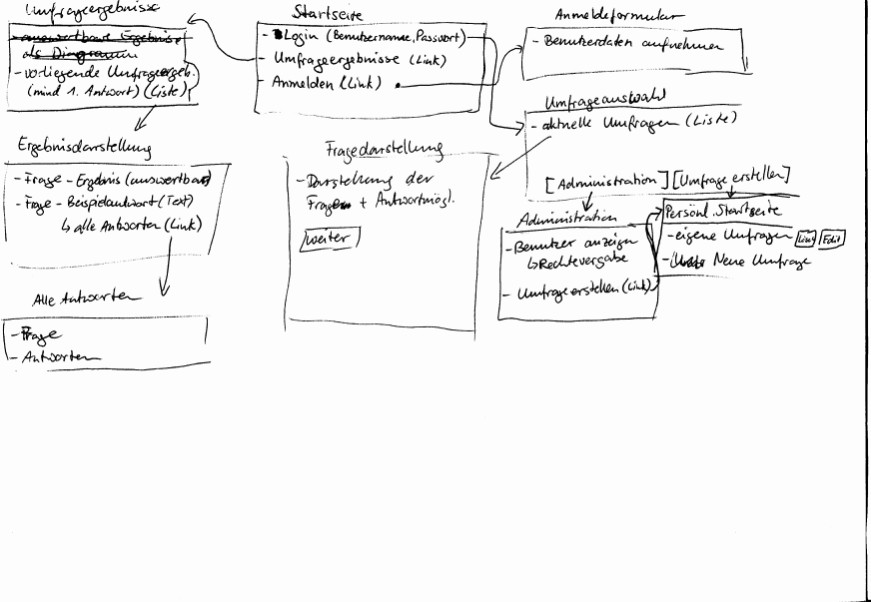 Umfrageergebnisse
auswertbare Ergebnisse
als Diagramm
- vorliegende Umfrageergeb.
(mind 1. Antwort) (Liste)
Startseite
- Login (Benutzername, Passwort)
- Umfrageergebnisse (Link)
- Anmelden (Link)
Anmeldeformular
- Benutzerdaten aufnehmen
Umfrageauswahl
- aktuelle Umfragen (Liste)
[Administration] [Umfrage erstellen]
Ergebnisdarstellung
- Frage - Ergebnis (auswertbar)
- Frage - Beispielantwort (Text)
↳ alle Antworten (Link)
Fragedarstellung
- Darstellung der
Fragen + Antwortmögl.
weiter
Administration
- Benutzer anzeigen
↳ Rechtevergabe
- Umfrage erstellen (Link)
Persönl. Startseite
- eigene Umfragen Edit
- Neue Umfrage
Alle Antworten
- Frage
- Antworten